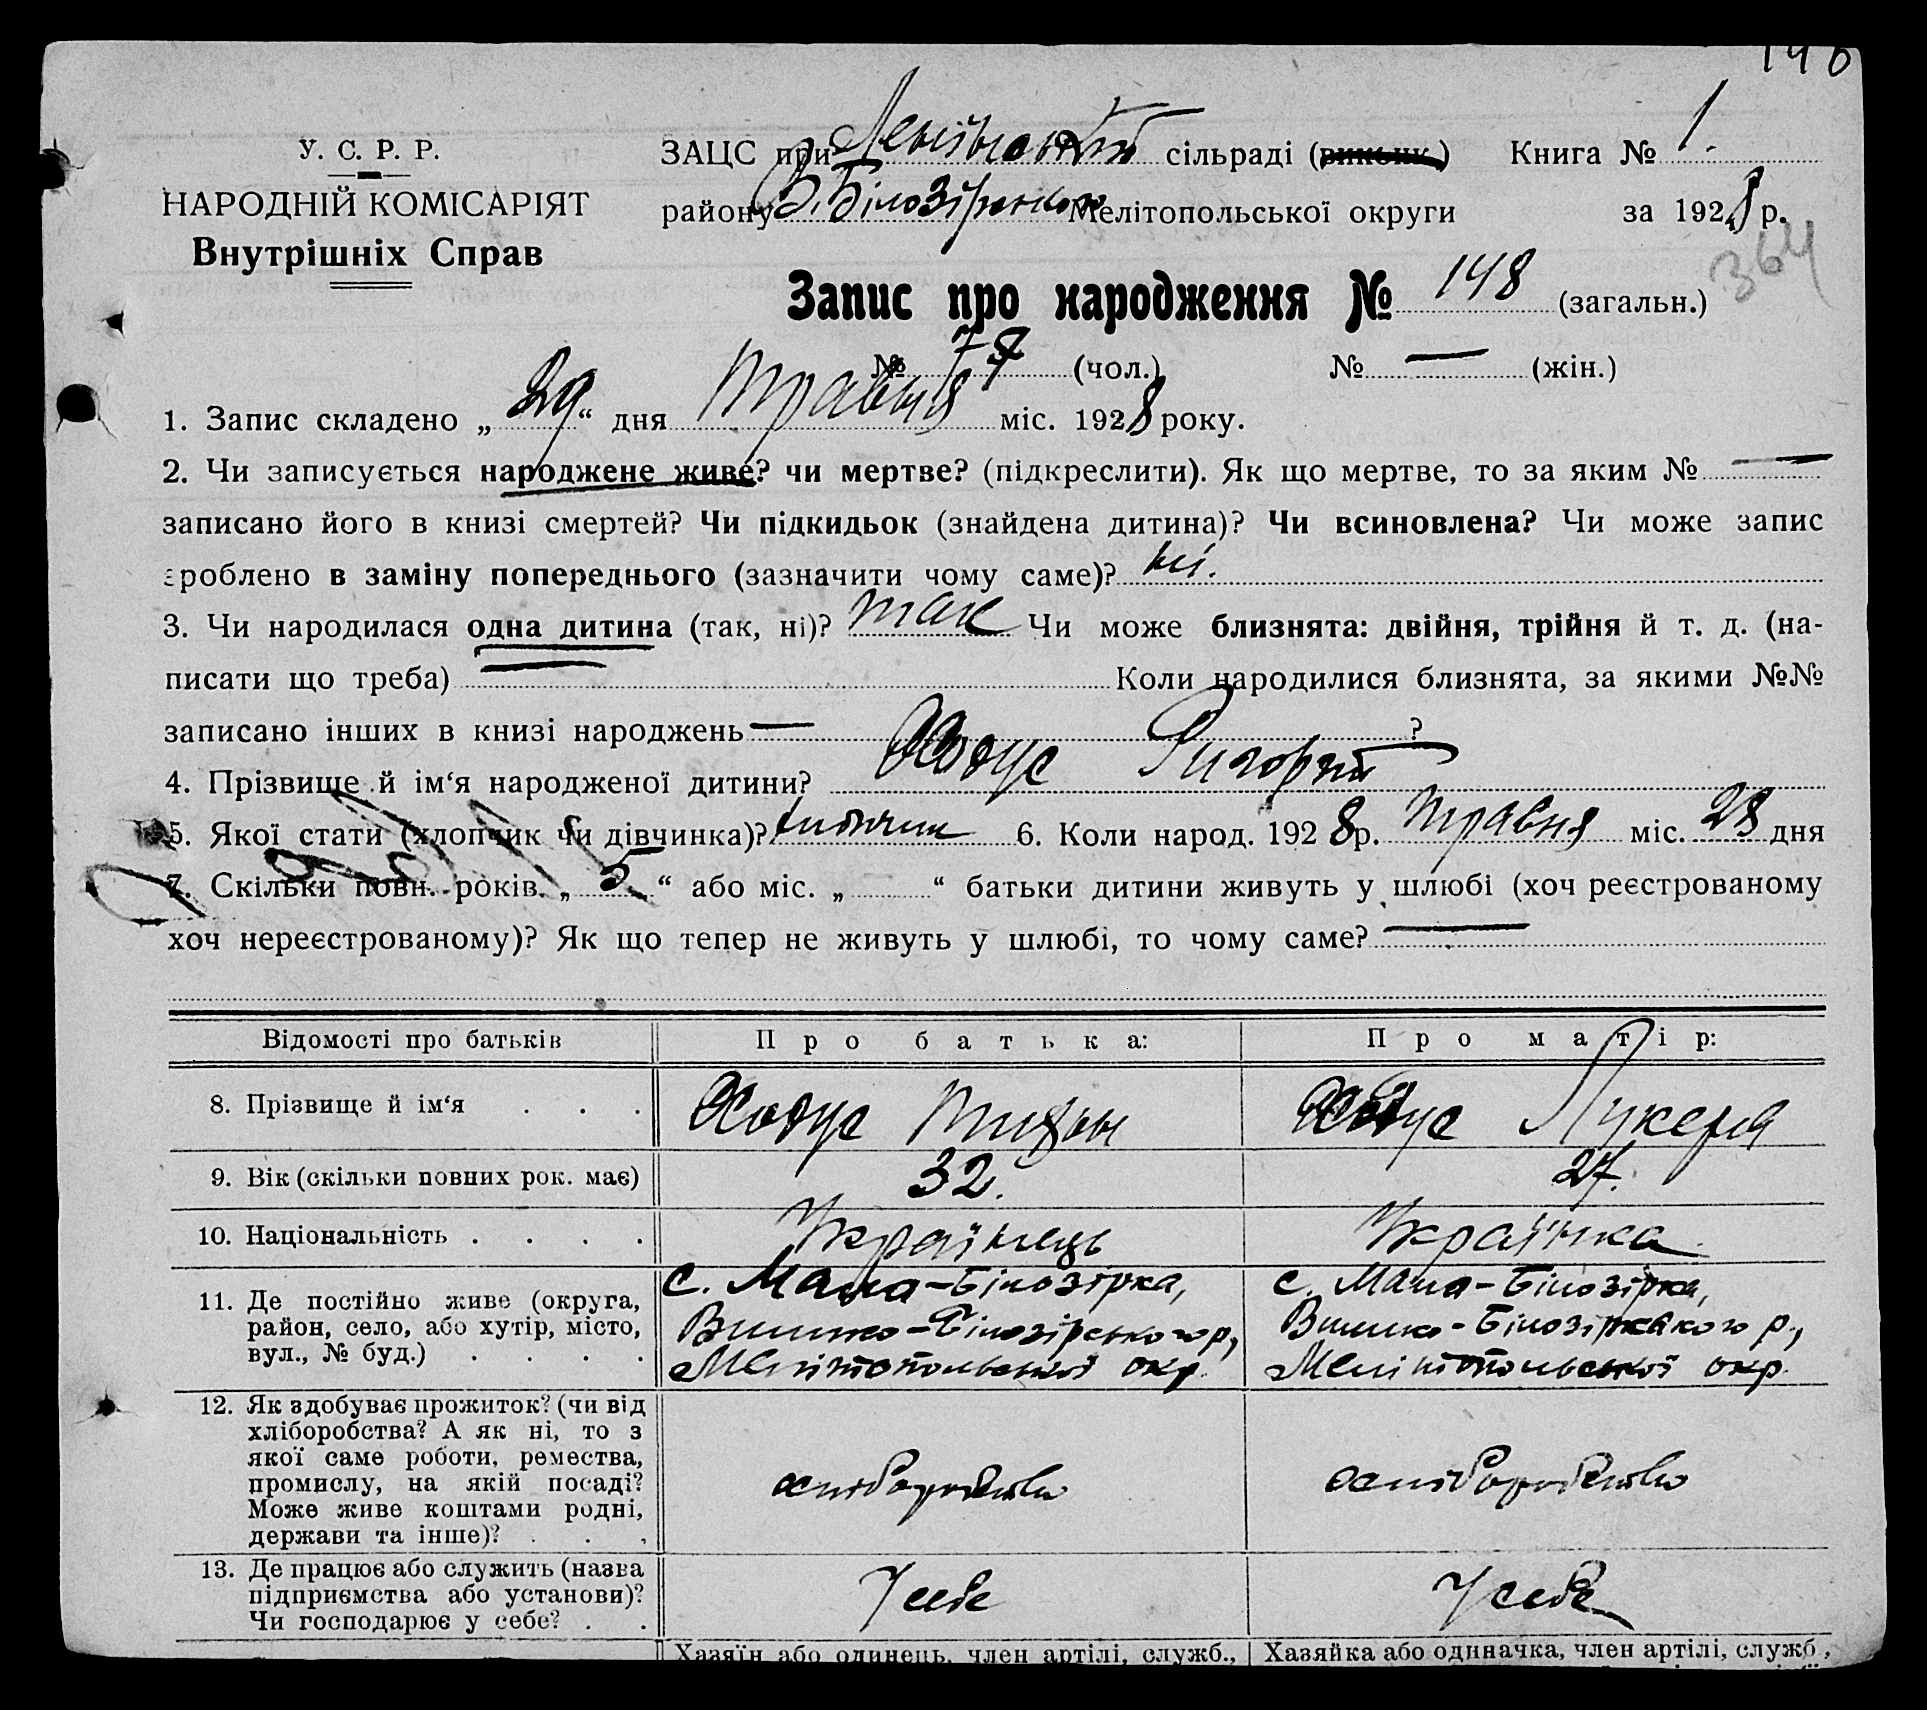 146
У. С. Р. Р.
НАРОДНІЙ КОМІСАРІЯТ
Внутрішніх Справ
ЗАЦС при сільраді (виконк.) Книга № 1.
району В. Білозірського Мелітопольської округи за 1928 р.
364
Запис про народження № 148 (загальн.)
№ 77 (чол.) № — (жін.)
1. Запис складено „29“ дня Травня міс. 1928 року.
2. Чи записується народжене живе? чи мертве? (підкреслити). Як що мертве, то за яким № —
записано його в книзі смертей? Чи підкидьок (знайдена дитина)? Чи всиновлена? Чи може запис
зроблено в заміну попереднього (зазначити чому саме)? ні.
3. Чи народилася одна дитина (так, ні)? так Чи може близнята: двійня, трійня й т. д. (на-
писати що треба) — Коли народилися близнята, за якими №№
записано інших в книзі народжень — ?
4. Прізвище й ім‘я народженої дитини? Ходус Григорій
5. Якої стати (хлопчик чи дівчинка)? хлопчик 6. Коли народ. 1928 р. Травня міс. 28 дня
7. Скільки повн. років „5“ або міс. „ “ батьки дитини живуть у шлюбі (хоч реєстрованому
хоч нереєстрованому)? Як що тепер не живуть у шлюбі, то чому саме? —
Відомості про батьків Про батька: Про матір:
8. Прізвище й ім‘я . . . Ходус Тихон Ходус Лукеря
9. Вік (скільки повних рок. має) 32. 27.
10. Національність . . . . Українець Українка
11. Де постійно живе (округа,
район, село, або хутір, місто,
вул., № буд.) . . . .
с. Мала-Білозірка,
Велико-Білозірського р.,
Мелітопольської окр.
с. Мала-Білозірка,
Велико-Білозірського р.,
Мелітопольської окр.
12. Як здобуває прожиток? (чи від
хліборобства? А як ні, то з
якої саме роботи, ремества,
промислу, на якій посаді?
Може живе коштами родні,
держави та інше)? . . .
хліборобство хліборобство
13. Де працює або служить (назва
підприємства або установи)?
Чи господарює у себе? . .
У себе У себе
Хазяїн або одинець, член артілі, служб., Хазяйка або одиначка, член артілі, служб.,